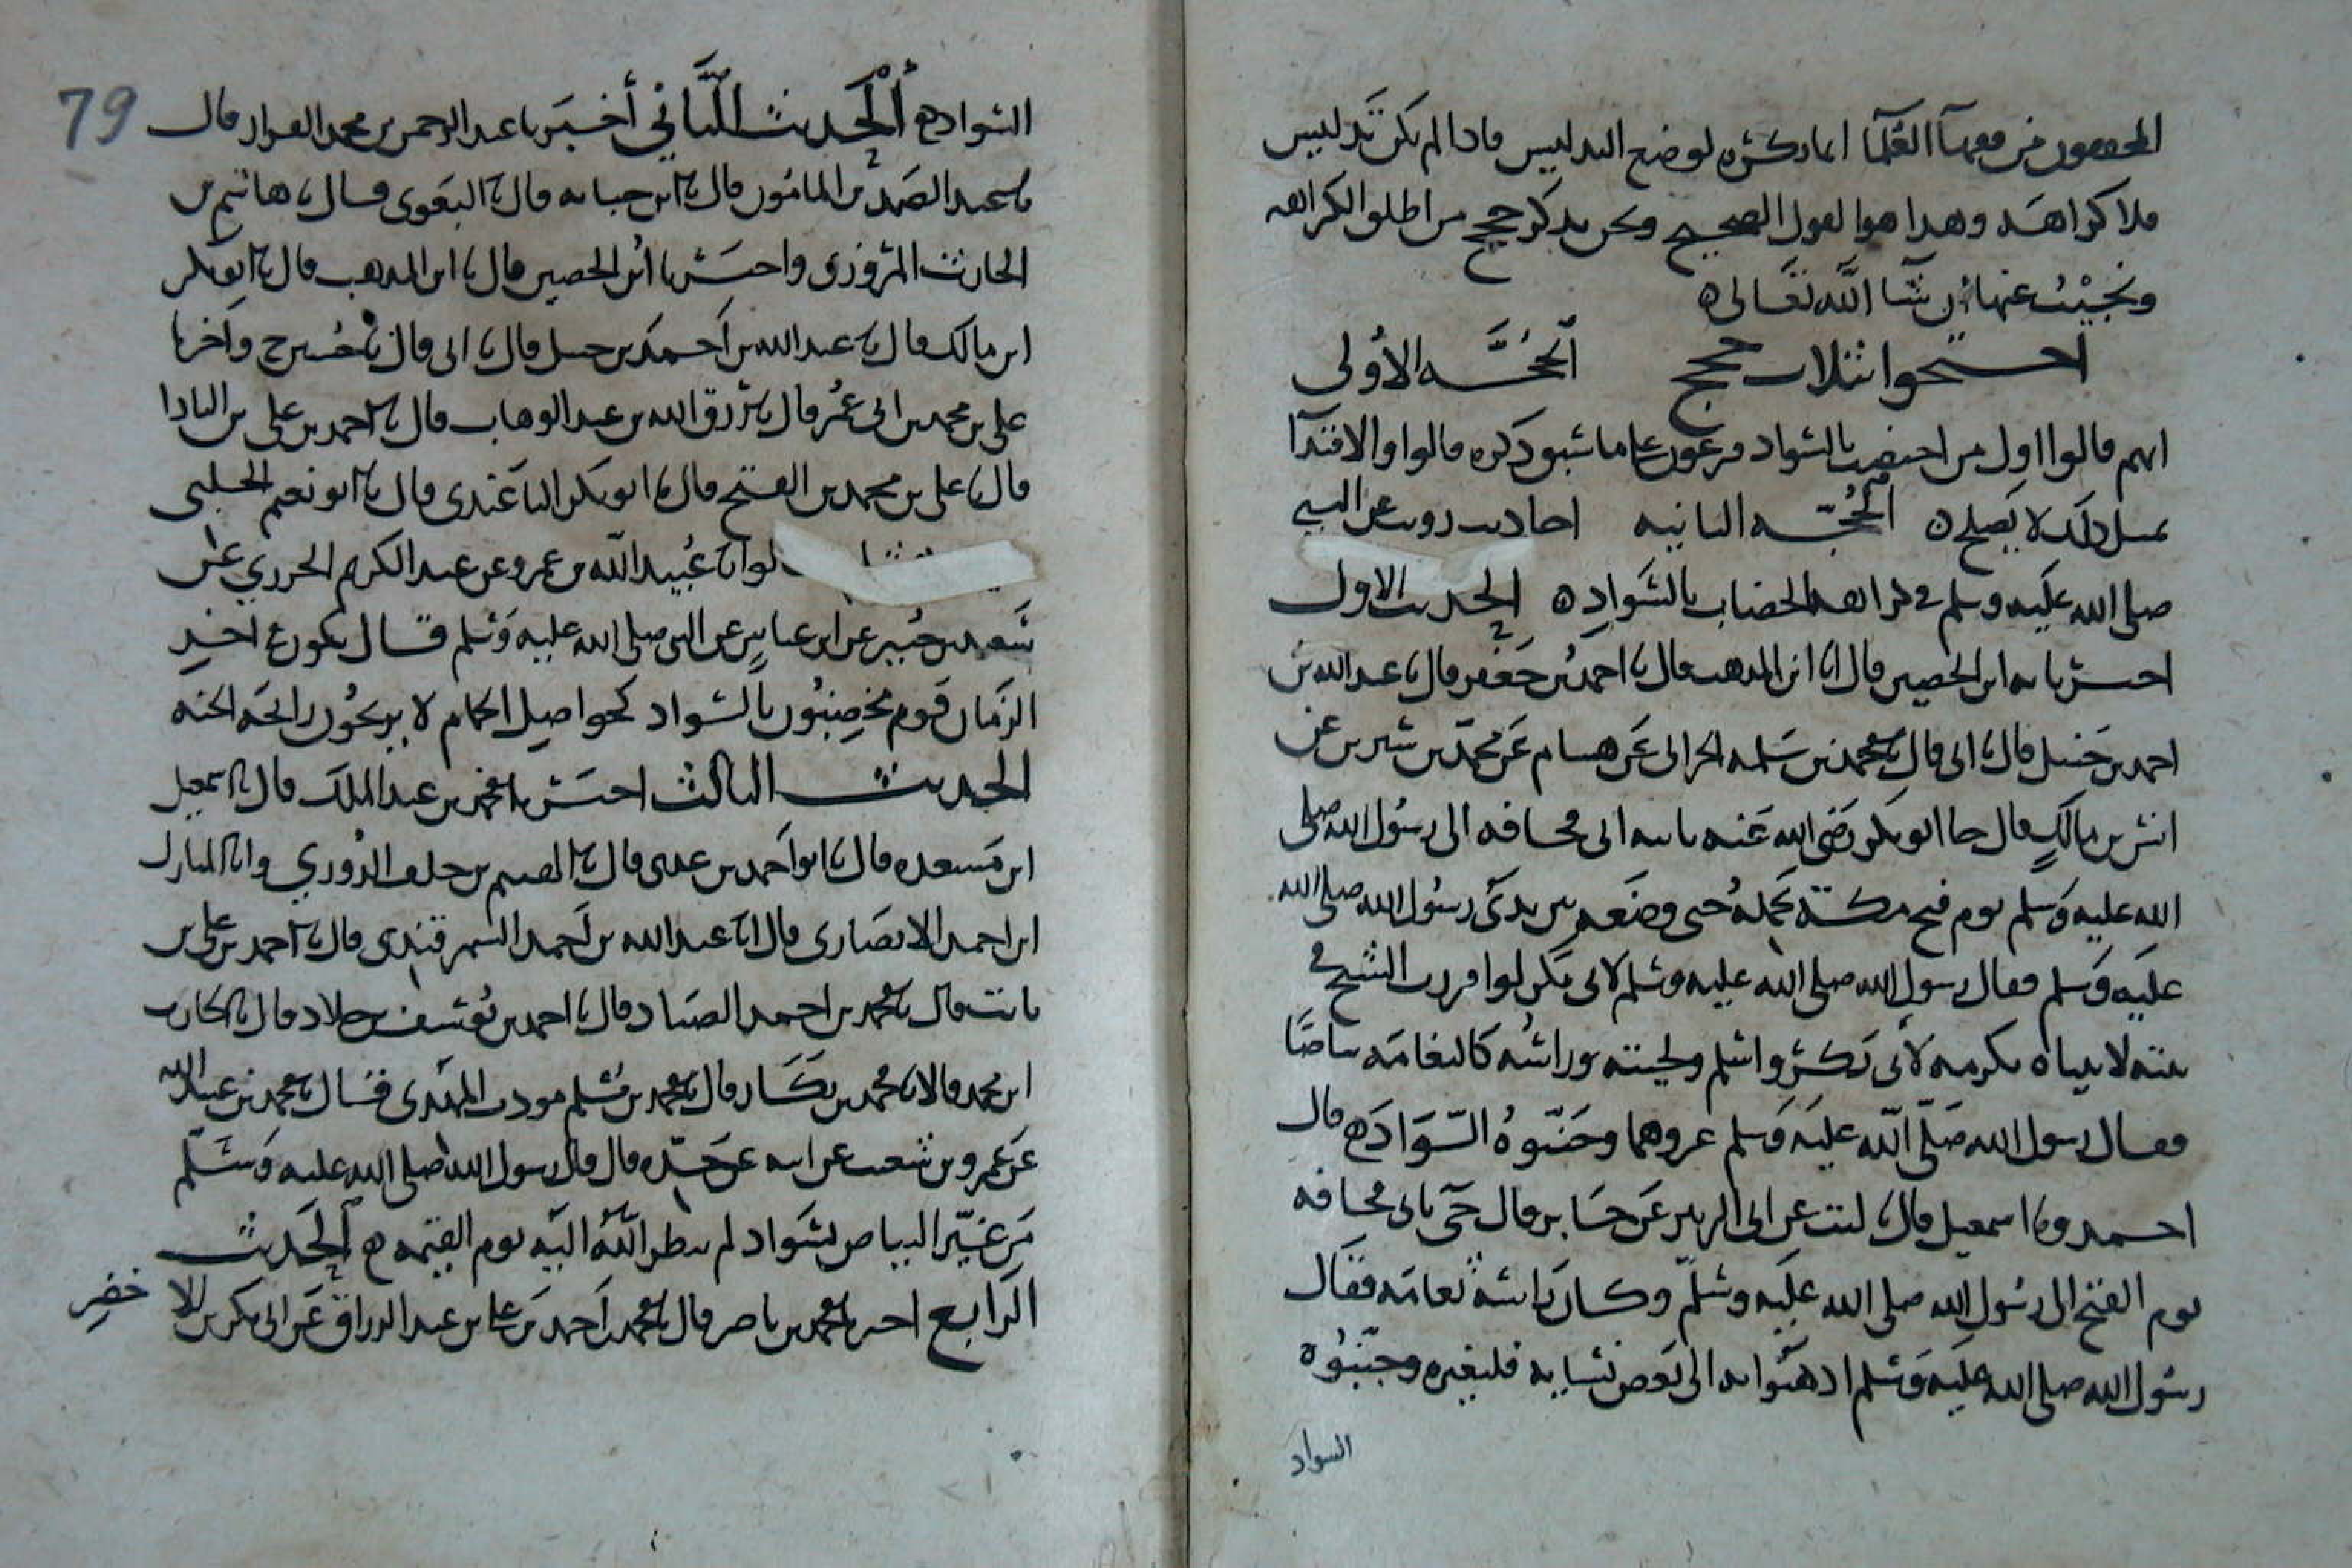 المحققون من فقهاء العلما انما ذكروه لوضع التدليس فاذا لم يكن تدليس
فلا كراهة وهذا هو القول الصحيح ونحن نذكر حجج من اطلق الكراهه
ونجيب عنها ان شا الله تعالى ه
احتجوا بثلاث حجج الحجه الأولى
انهم قالوا اول من اختضب بالسواد فرعون على ما سبق ذكره قالوا والاقتدآ
بمثل ذلك لا يصلح ه الحجه الثانيه احاديث رويت عن النبي
صلى الله عليه وسلم في كراهه الخضاب بالسواد ه الحديث الاول
اخبرنا به ابن الحصين قال انا ابن المذهب قال انا احمد بن جعفر قال نا عبد الله بن
احمد بن حنبل قال نا ابى قال نا محمد بن سلمه الحرانى عن هشام عن محمد بن سيرين عن
انس بن مالك قال جا ابو بكر رضى الله عنه بابيه ابى قحافه الى رسول الله صلى
الله عليه وسلم يوم فتح مكة يحمله حتى وضعه بين يدى رسول الله صلى الله
عليه وسلم فقال رسول الله صلى الله عليه وسلم لابى بكر لو اقررت الشيخ في
بيته لاتيناه تكرمه لابى بكر واسلم ولحيته وراسه كالثغامه بياضًا
فقال رسول الله صلى الله عليه وسلم غيروهما وجنبوه السواد ه قال
احمد ونا اسمعيل قال نا ليث عن ابى الزبير عن جابر قال جى بابى قحافه
يوم الفتح الى رسول الله صلى الله عليه وسلم وكان راسه ثغامه فقال
رسول الله صلى الله عليه وسلم اذهبوا به الى بعض نسايه فليغيره وجنبوه
السواد
79
السواد ه الحديث الثاني أخبرنا عبد الرحمن بن محمد القزاز قال
نا عبد الصمد بن المامون قال نا ابن حبابه قال نا البغوى قال نا هاشم بن
الحارث المروزى واخبرنا ابن الحصين قال نا ابن المذهب قال نا ابو بكر
ابن مالك قال نا عبد الله بن احمد بن حنبل قال نا ابى قال نا حسين ح واخرنا
على بن محمد بن ابى عمر قال نا رزق الله بن عبد الوهاب قال نا احمد بن على بن البادا
قال نا على بن محمد بن الفتح قال نا ابو بكر الباغندى قال نا ابو نعيم الحلبى
قالوا نا عبيد الله بن عمرو عن عبد الكريم الجزري عن
سعيد بن جبير عن ابن عباس عن النبى صلى الله عليه وسلم قال يكون في اخر
الزمان قوم يخضبون بالسواد كحواصل الحمام لا يريحون رائحه الجنه
الحديث الثالث اخبرنا محمد بن عبد الملك قال نا اسمعيل
ابن مسعده قال نا ابو احمد بن عدى قال نا القسم بن خلف الدوري وانا المبارك
ابن احمد الانصارى قال انا عبد الله بن احمد السمرقندى قال نا احمد بن على بن
ثابت قال نا محمد بن احمد الصياد قال نا احمد بن يوسف بن خلاد قال نا الحارث
ابن محمد قالا نا محمد بن بكار قال نا محمد بن مسلم مودب المهدى قال نا محمد بن عبيد الله
عن عمرو بن شعيب عن ابيه عن جده قال قال رسول الله صلى الله عليه وسلم
من غير البياض بسواد لم ينظر الله اليه يوم القيمه ه الحديث
الرابع اخبرنا محمد بن ناصر قال نا محمد بن احمد بن على بن عبد الرزاق عن ابى بكر بن الاخضر